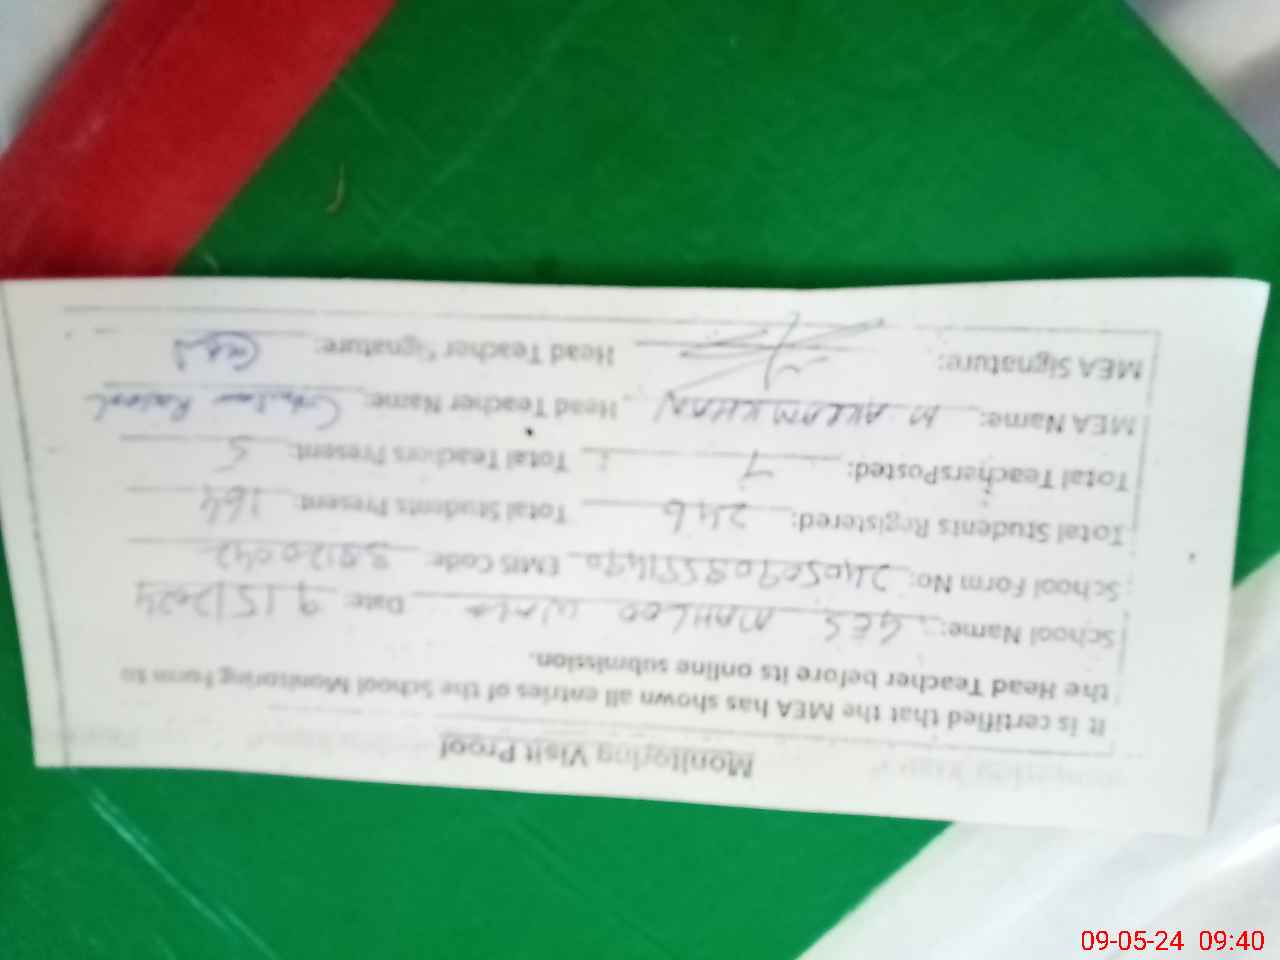 Monitoring Visit Proof
It is certified that the MEA has shown all entries of the School Monitoring Form to
the Head Teacher before its online submission.
School Name: GES MAHLOO Date 9/5/2024
School Form No: EMIS Code:
Total Students Registered: 246 Total Students Present: 164
Total TeachersPosted: 7 Total Teachers Present: 5
MEA Name: M. AKRAM KHAN Head Teacher Name: Rasool
MEA Signature: Head Teacher Signature:
09-05-24 09:40